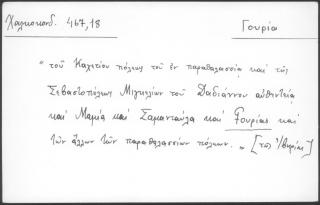 Χαλκοκονδ. 467,18
Γουρία
" τοῦ Καλτίου πόλεως τοῦ ἐν παραθαλασσίᾳ καὶ τῆς
Σεβαστοπόλεως Μιγκρελίων τοῦ Δαδιάνου αὐθεντεία
καὶ Μαμία καὶ Σαμανταύλα καὶ Γουρίας καὶ
τῶν ἄλλων τῶν παραθαλασσίων πόλεων. " [τῆς Ἰβηρίας]